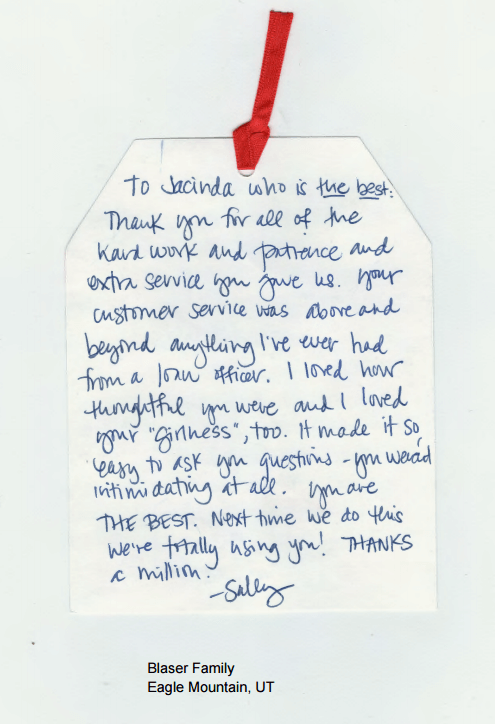 To Jacinda who is the best:
Thank you for all of the
hard work and patience and
extra service you gave us. Your
customer service was above and
beyond anything I've ever had
from a loan officer. I loved how
thoughtful you were and I loved
your "girlness", too. It made it so
easy to ask you questions - you weren't
intimidating at all. You are
THE BEST. Next time we do this
we're totally using you! THANKS
a million.
-Sally
Blaser Family
Eagle Mountain, UT